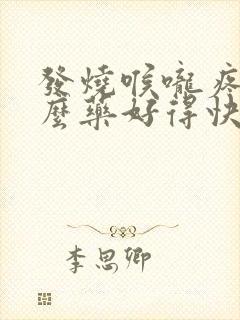 發燒喉嚨疼
麼藥好得快
李思卿